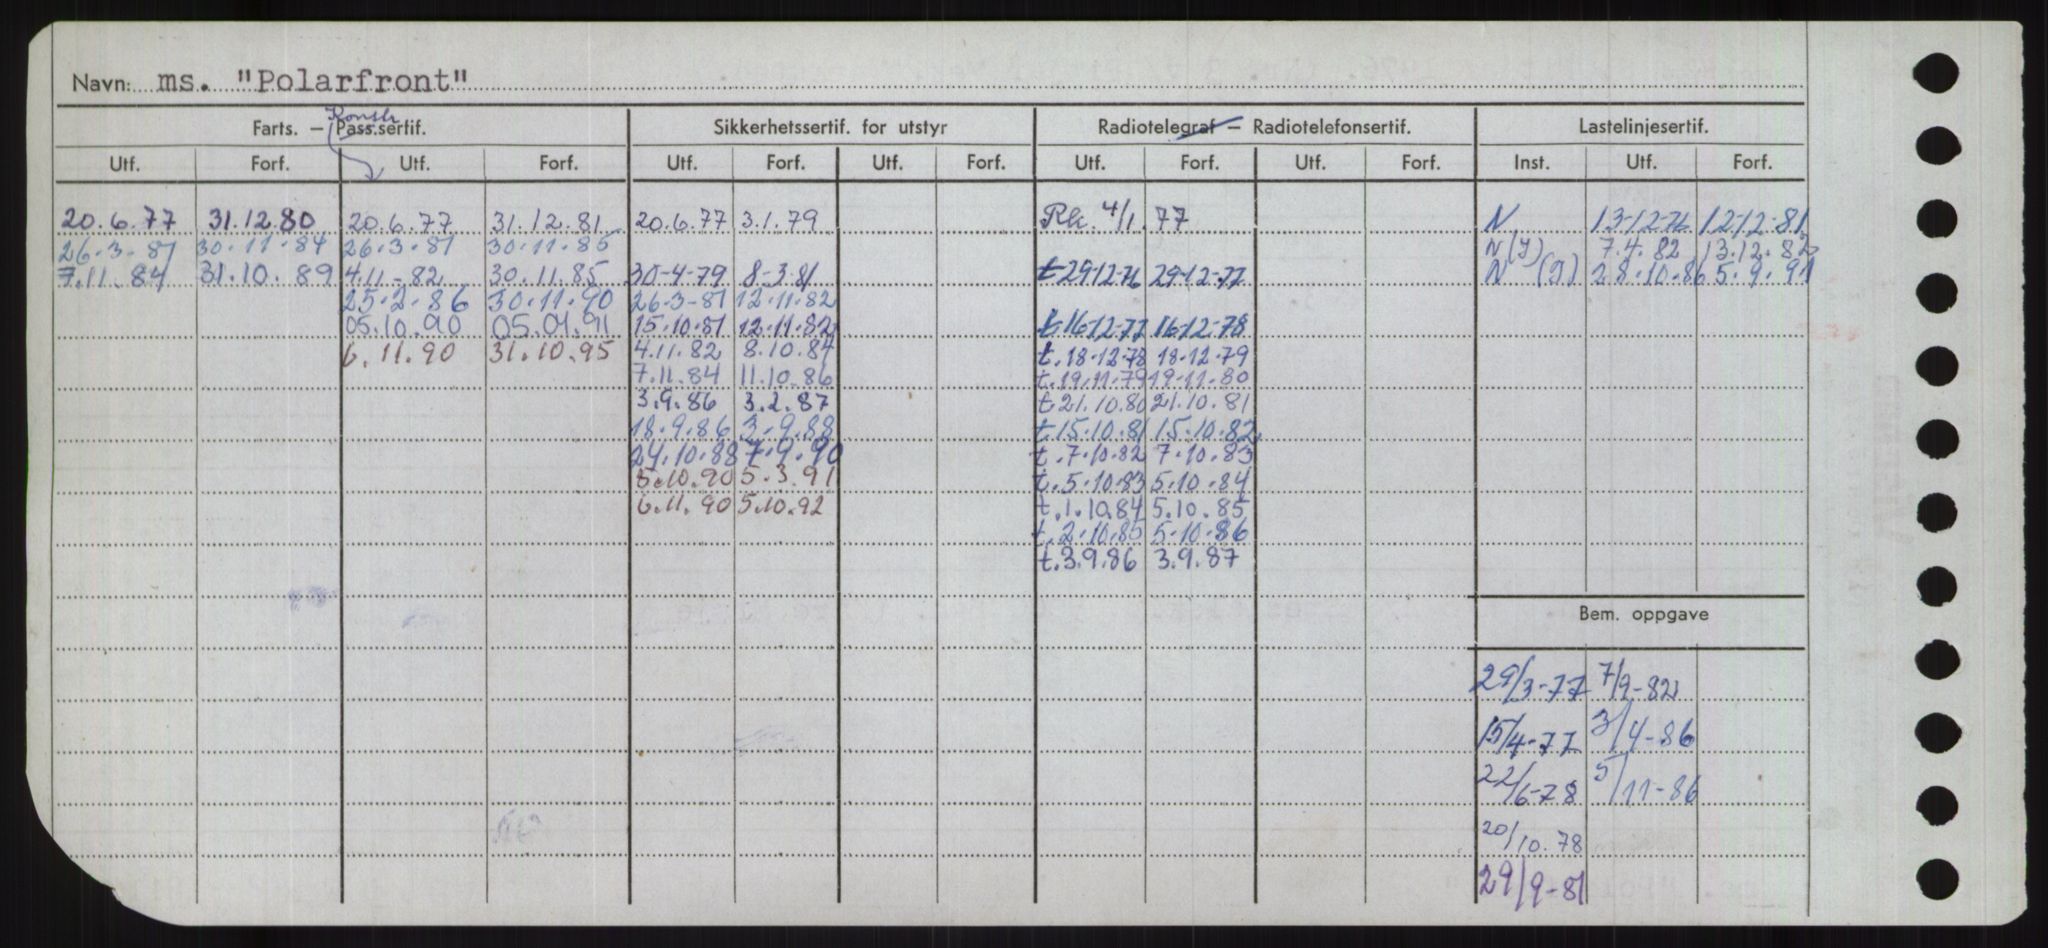 Navn: ms. "Polarfront"
Konstr
Farts. — Pass.sertif. Sikkerhetssertif. for utstyr Radiotelegraf — Radiotelefonsertif. Lastelinjesertif.
Utf. Forf. Utf. Forf. Utf. Forf. Utf. Forf. Utf. Forf. Utf. Forf. Inst. Utf. Forf.
20.6.77 31.12.80 20.6.77 31.12.81 20.6.77 3.1.79 Rk. 4/1.77 N 13-12-76 12-12-81
26-3-81 30-11-84 26-3-81 30-11-85 N(I) 7.4.82 13.12.82
7.11.84 31.10.89 4.11-82 30.11.85 30-4-79 8-3-81 t-29-12-76 29-12-77 N (I) 28.10.86 5.9.91
25-2-86 30-11-90 26-3-81 12-11-82
05.10.90 05.01.91 15.10.81 12.11.82 t 16-12-77 16-12-78
6.11.90 31.10.95 4.11.82 8.10.84 t.18-12-78 18-12-79
7.11.84 11.10.86 t.19.11.79 19-11-80
3.9.86 3.2.87 t.21.10.80 21.10.81
18.9.86 3-9.88 t.15.10.81 15.10.82
24.10.88 7.9.90 t.7.10.82 7.10.83
5.10.90 5.3.91 t.5.10.83 5.10.84
6.11.90 5.10.92 t.1.10.84 5.10.85
t.2.10.85 5.10.86
t.3.9.86 3.9.87
Bem. oppgave
29/3-77 7/9-82
15/4-77 3/4-86
22/6-78 5/11-86
20/10.78
29/9-81